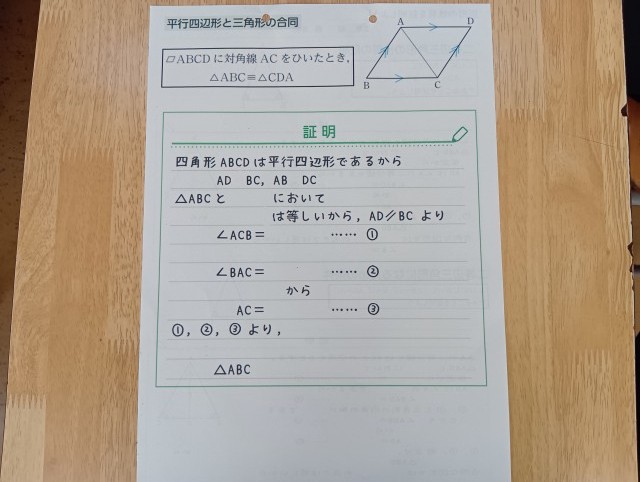 平行四辺形と三角形の合同
▱ABCDに対角線ACをひいたとき,
△ABC≡△CDA
A D
B C
証明
四角形ABCDは平行四辺形であるから
AD BC, AB DC
△ABCと において
は等しいから, AD∥BCより
∠ACB= …… ①
∠BAC= …… ②
から
AC= …… ③
①, ②, ③より,
△ABC